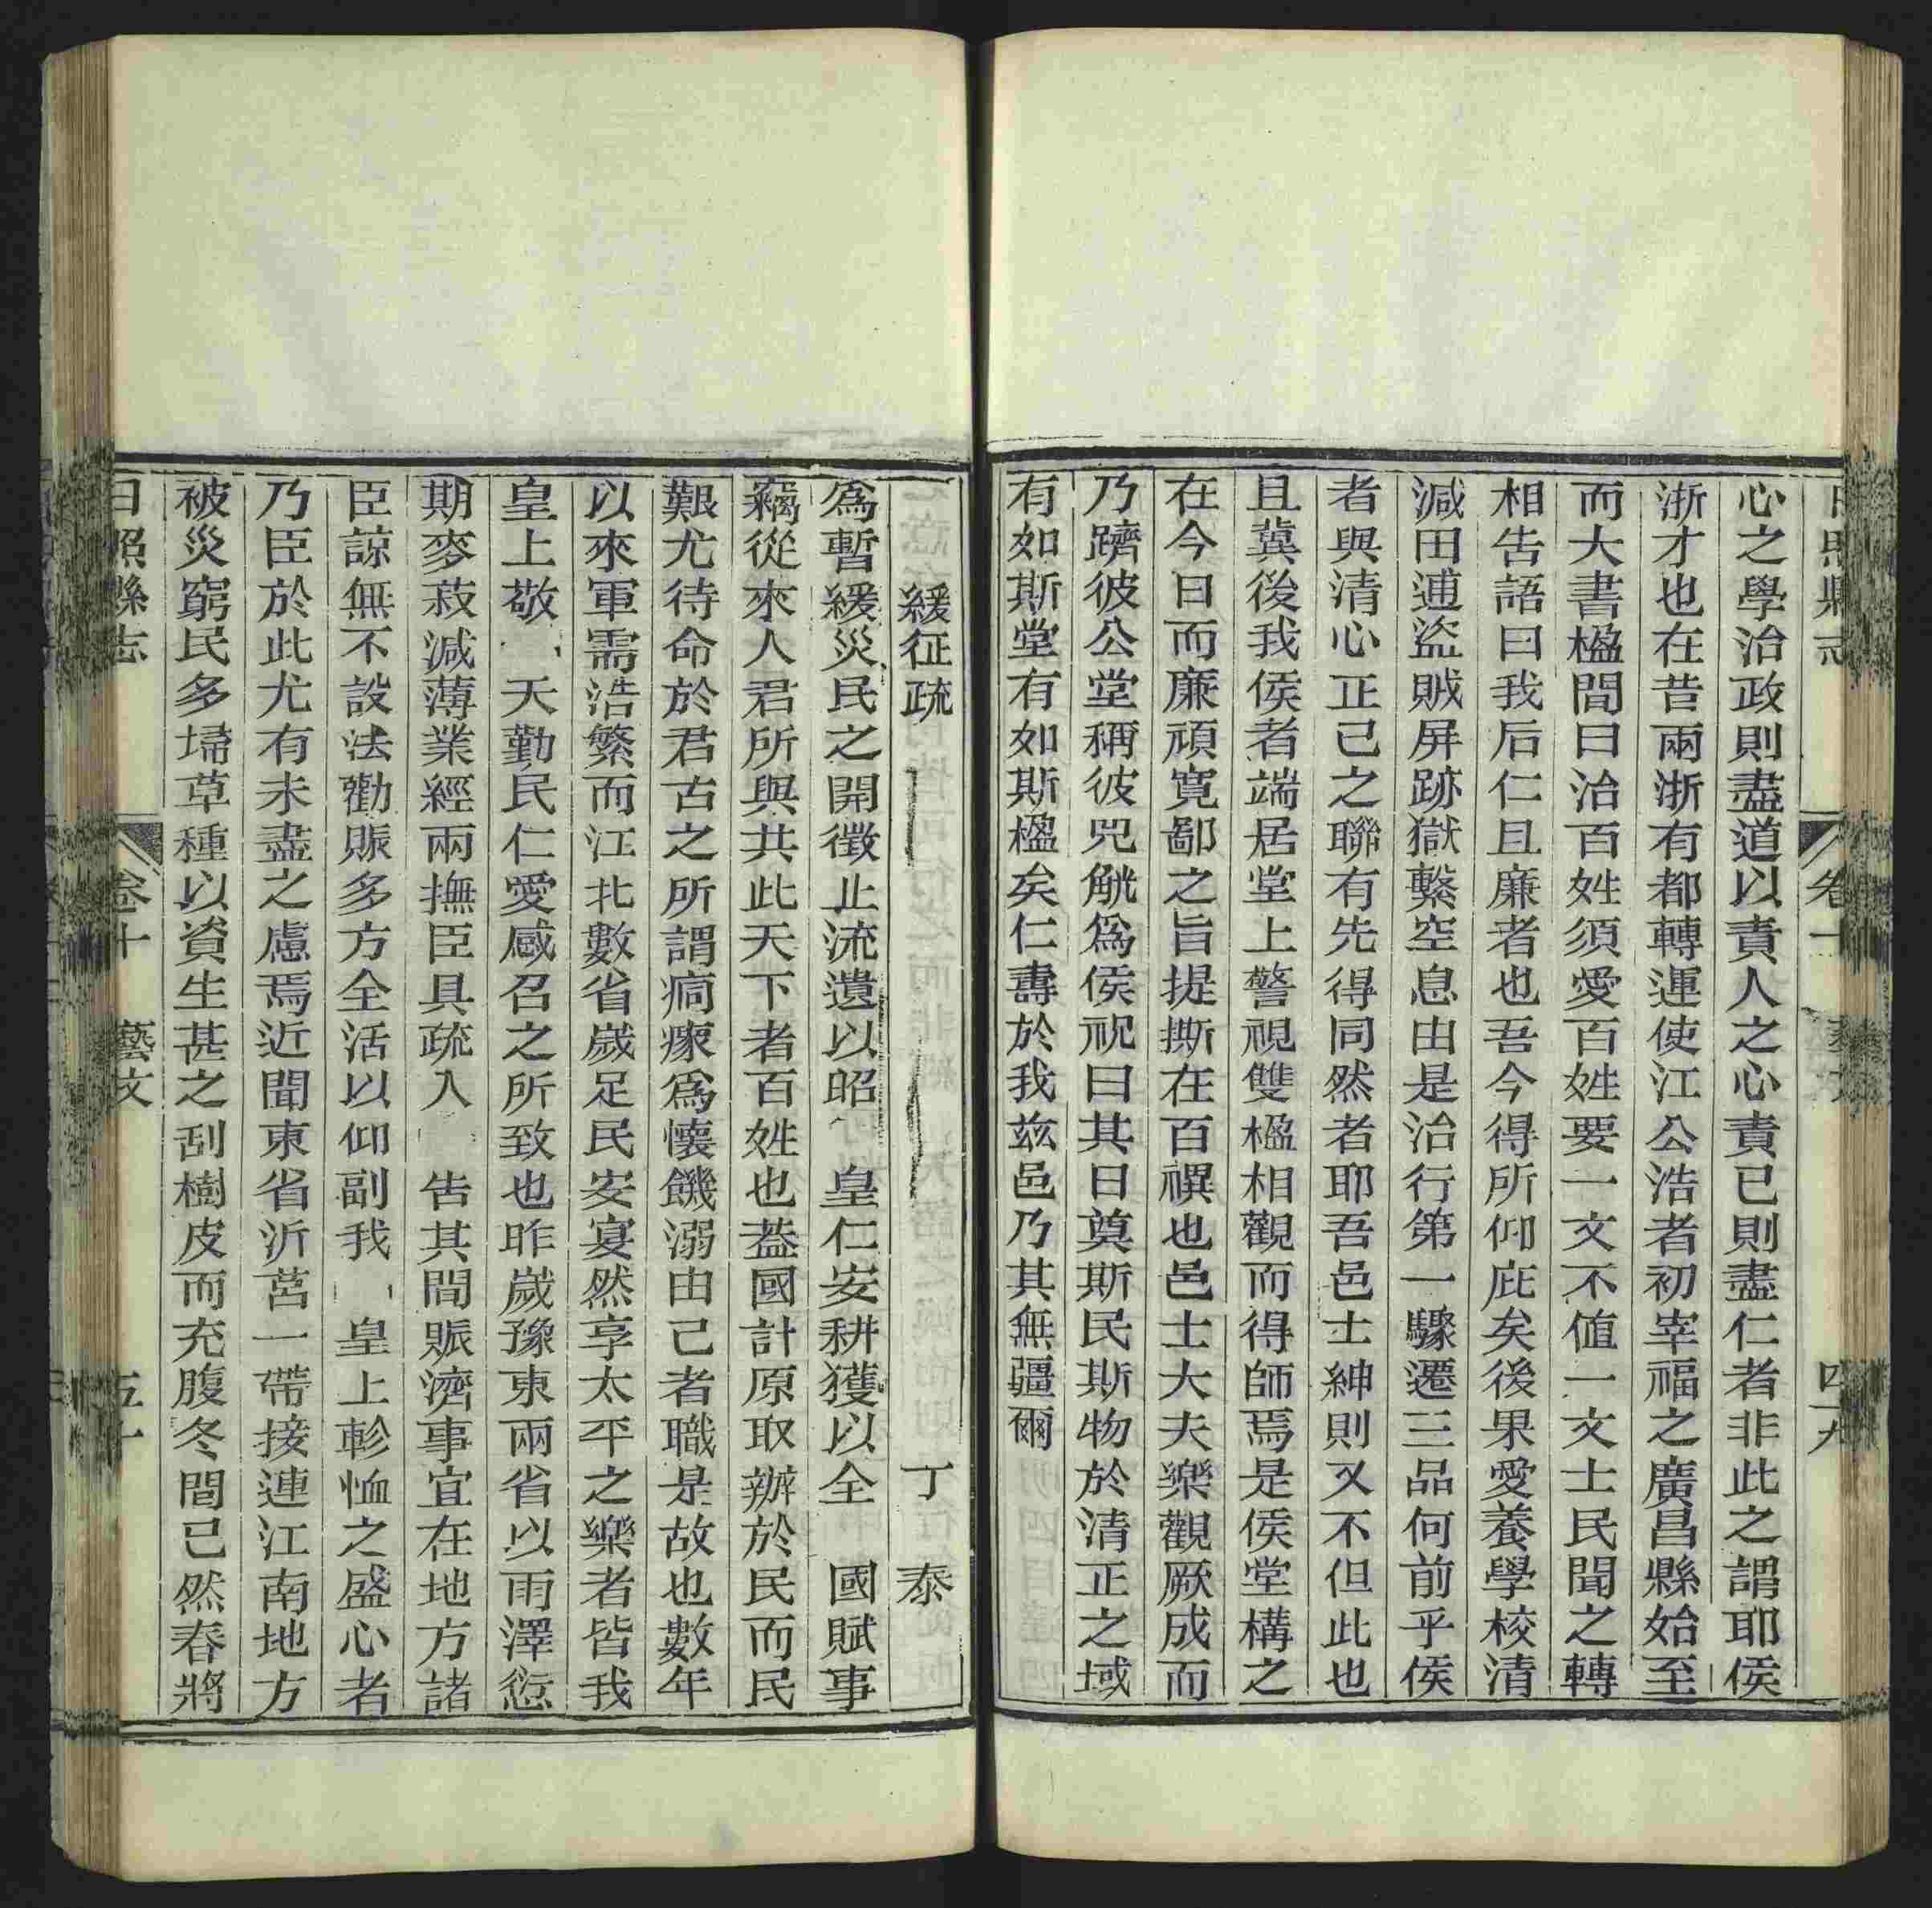 心之學治政則盡道以責人之心責已則盡仁者非此之謂耶侯
浙才也在昔兩浙有都轉運使江公浩者初宰福之廣昌縣始至
而大書楹間曰治百姓須愛百姓要一文不值一文士民聞之轉
相告語曰我后仁且廉者也吾今得所仰庇矣後果愛養學校清
減田逋盜賊屏跡獄繫空息由是治行第一驟遷三品何前乎侯
者與清心正己之聯有先得同然者耶吾邑士紳則又不但此也
且冀後我侯者端居堂上警視雙楹相觀而得師焉是侯堂構之
在今日而廉頑寬鄙之旨提撕在百禩也邑士大夫樂觀厥成而
乃躋彼公堂稱彼兕觥爲侯祝曰其日奠斯民斯物於清正之域
有如斯堂有如斯楹矣仁壽於我茲邑乃其無疆爾
緩征疏 丁泰
爲暫緩災民之開徵止流遺以昭 皇仁安耕獲以全 國賦事
竊從來人君所與共此天下者百姓也葢國計原取辦於民而民
艱尤待命於君古之所謂痌瘝爲懷饑溺由己者職是故也數年
以來軍需浩繁而江北數省歲足民安宴然享太平之樂者皆我
皇上敬 天勤民仁愛感召之所致也昨歲豫東兩省以雨澤愆
期麥菽減薄業經兩撫臣具疏入 告其間賑濟事宜在地方諸
臣諒無不設法勸賑多方全活以仰副我 皇上軫恤之盛心者
乃臣於此尤有未盡之慮焉近聞東省沂莒一帶接連江南地方
被災窮民多埽草種以資生甚之刮樹皮而充腹冬間已然春將
日照縣志 卷十 藝文 五十